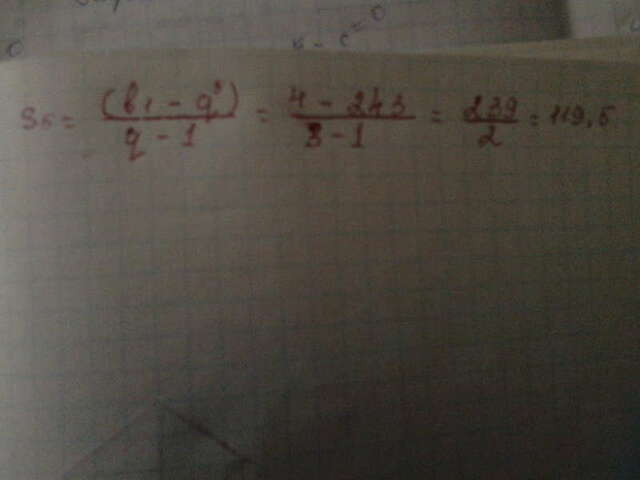 S₅ = (b₁ - q⁵) / (q - 1) = (4 - 243) / (3 - 1) = 239 / 2 = 119,5